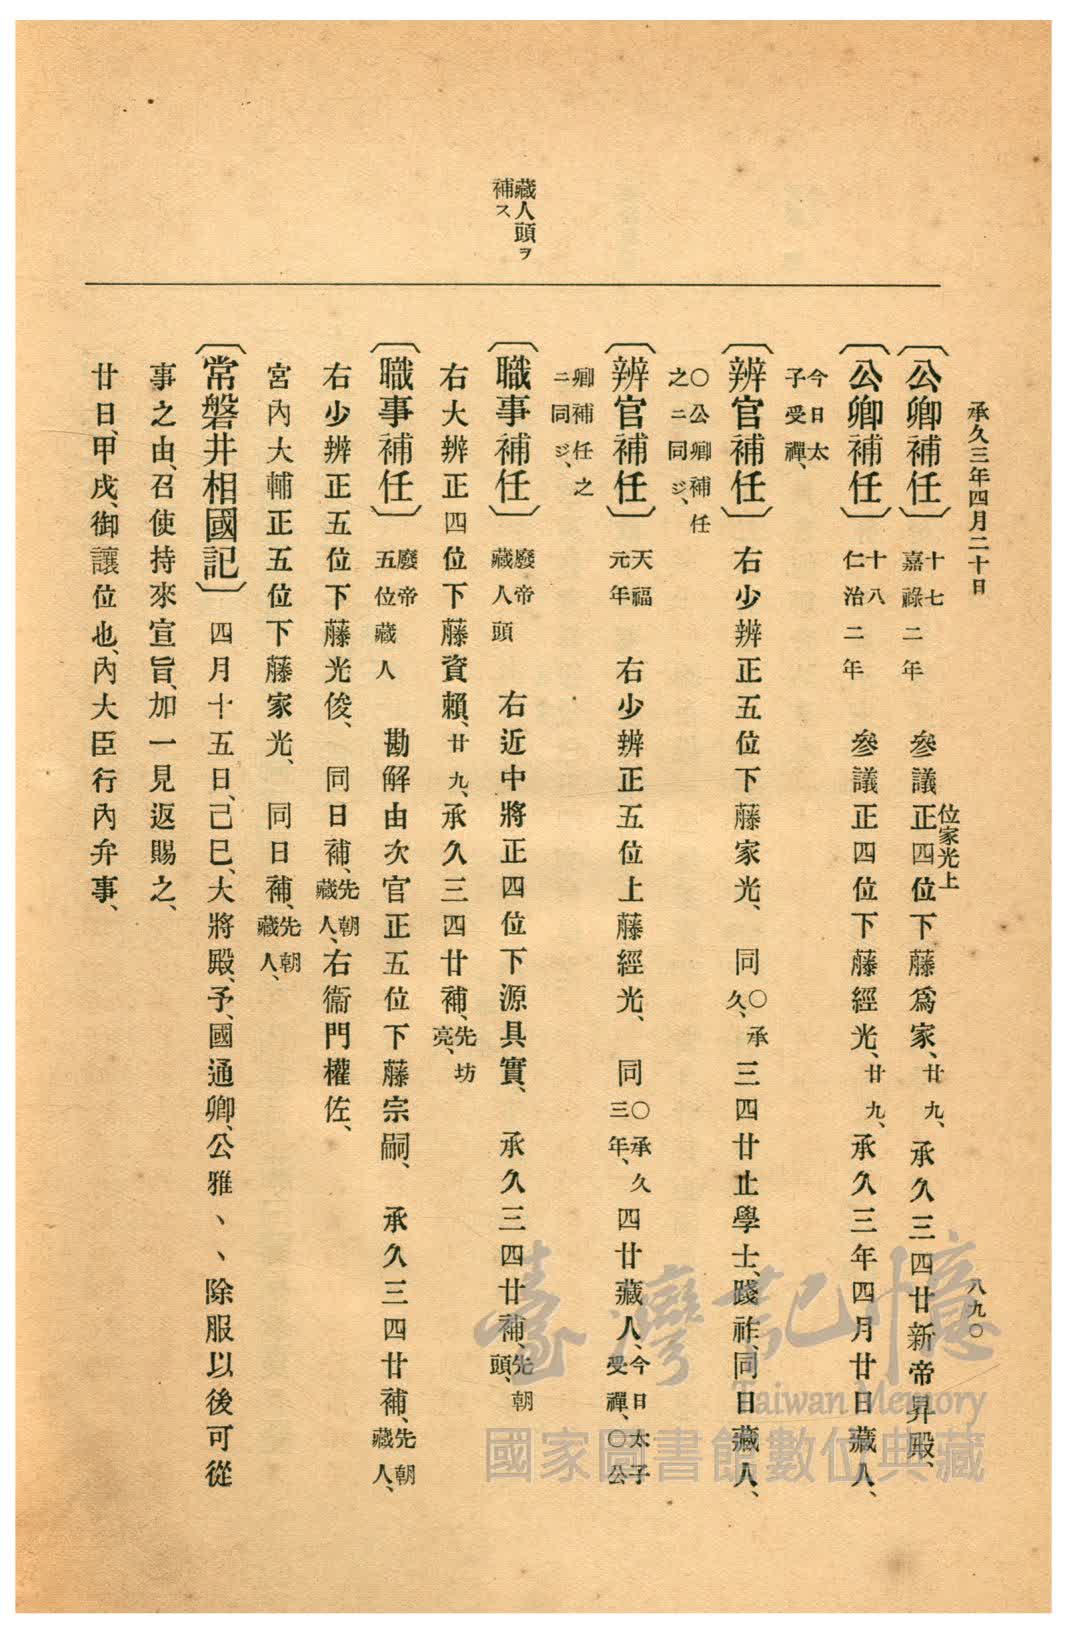 承久三年四月二十日
八九〇
藏人頭ヲ
補ス
〔公卿補任〕十七 嘉祿二年 參議正四位下藤爲家、廿九、承久三四廿新帝昇殿、
位家光上
〔公卿補任〕十八 仁治二年 參議正四位下藤經光、廿九、承久三年四月廿日藏人、
今日太子受禪、
〔辨官補任〕右少辨正五位下藤家光、同〇承久、三四廿止學士、踐祚、同日藏人、
〇公卿補任之ニ同ジ、
〔辨官補任〕天福元年 右少辨正五位上藤經光、同〇承久三年、四廿藏人、今日太子受禪、〇公
卿補任之ニ同ジ、
〔職事補任〕廢帝藏人頭 右近中將正四位下源具實、承久三四廿補、先朝頭、
右大辨正四位下藤資賴、廿九、承久三四廿補、先坊亮、
〔職事補任〕廢帝五位藏人 勘解由次官正五位下藤宗嗣、承久三四廿補、先朝藏人、
右少辨正五位下藤光俊、同日補、先朝藏人、右衞門權佐、
宮內大輔正五位下藤家光、同日補、先朝藏人、
〔常磐井相國記〕四月十五日、己巳、大將殿、予、國通卿、公雅、、除服以後可從
事之由、召使持來宣旨、加一見返賜之、
廿日、甲戌、御讓位也、內大臣行內弁事、
臺灣記憶
Taiwan Memory
國家圖書館數位典藏